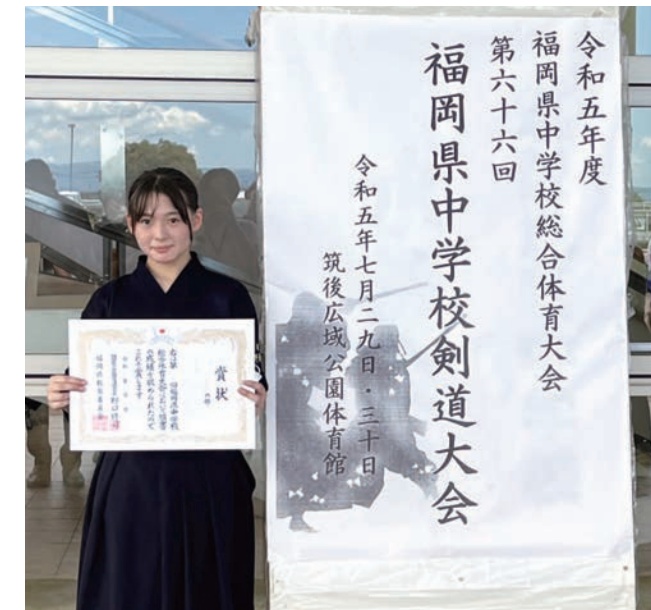 令和五年度
福岡県中学校総合体育大会
第六十六回
福岡県中学校剣道大会
令和五年七月二九日・三十日
筑後広域公園体育館
賞状